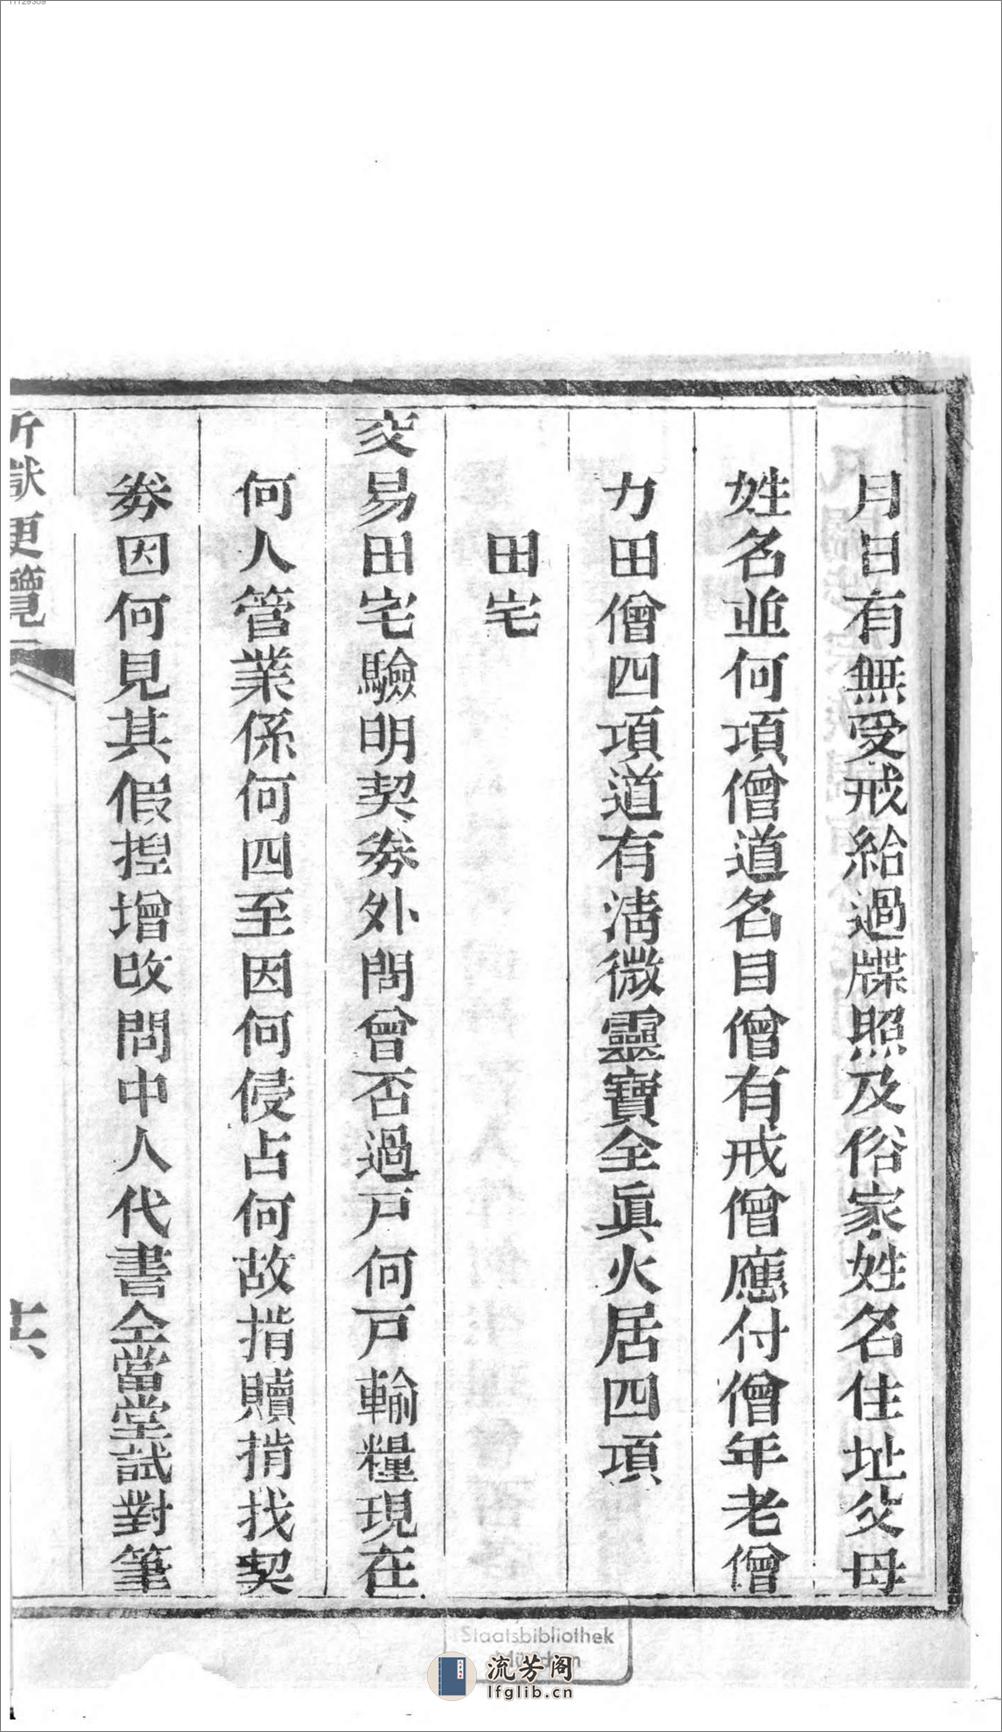 11129309
月日有無受戒給過牒照及俗家姓名住址父母
姓名並何項僧道名目僧有戒僧應付僧年老僧
力田僧四項道有淸微靈寶全眞火居四項
田宅
交易田宅驗明契券外問曾否過戸何戸輸糧現在
何人管業係何四至因何侵占何故掯贖掯找契
券因何見其假捏增改問中人代書仝當堂試對筆
折獄更覽一
十六
Staatsbibliothek
München
流芳阁
lfglib.cn